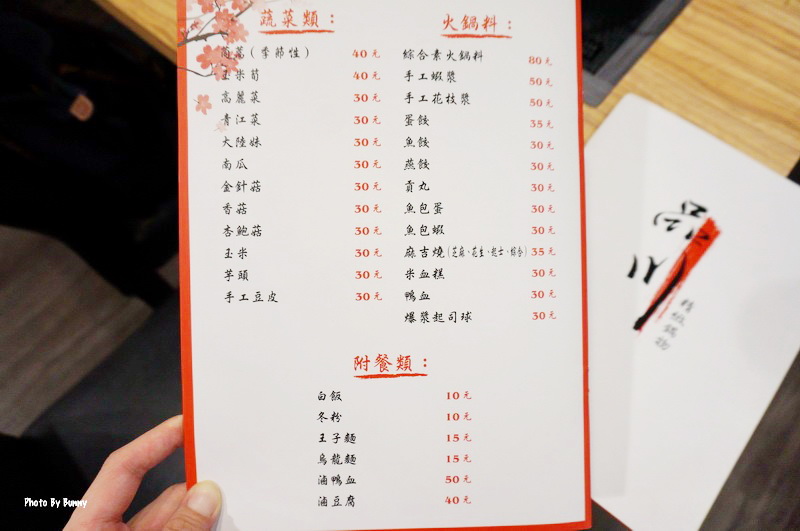 蔬菜類：
茼蒿(季節性) 40元
玉米筍 40元
高麗菜 30元
青江菜 30元
大陸妹 30元
南瓜 30元
金針菇 30元
香菇 30元
杏鮑菇 30元
玉米 30元
芋頭 30元
手工豆皮 30元
火鍋料：
綜合素火鍋料 80元
手工蝦漿 50元
手工花枝漿 50元
蛋餃 35元
魚餃 30元
燕餃 30元
貢丸 30元
魚包蛋 30元
魚包蝦 30元
麻吉燒(芝麻、花生、起士、綜合) 35元
米血糕 30元
鴨血 30元
爆漿起司球 30元
附餐類：
白飯 10元
冬粉 10元
王子麵 15元
烏龍麵 15元
滷鴨血 50元
滷豆腐 40元
精緻鍋物
Photo By Bunny